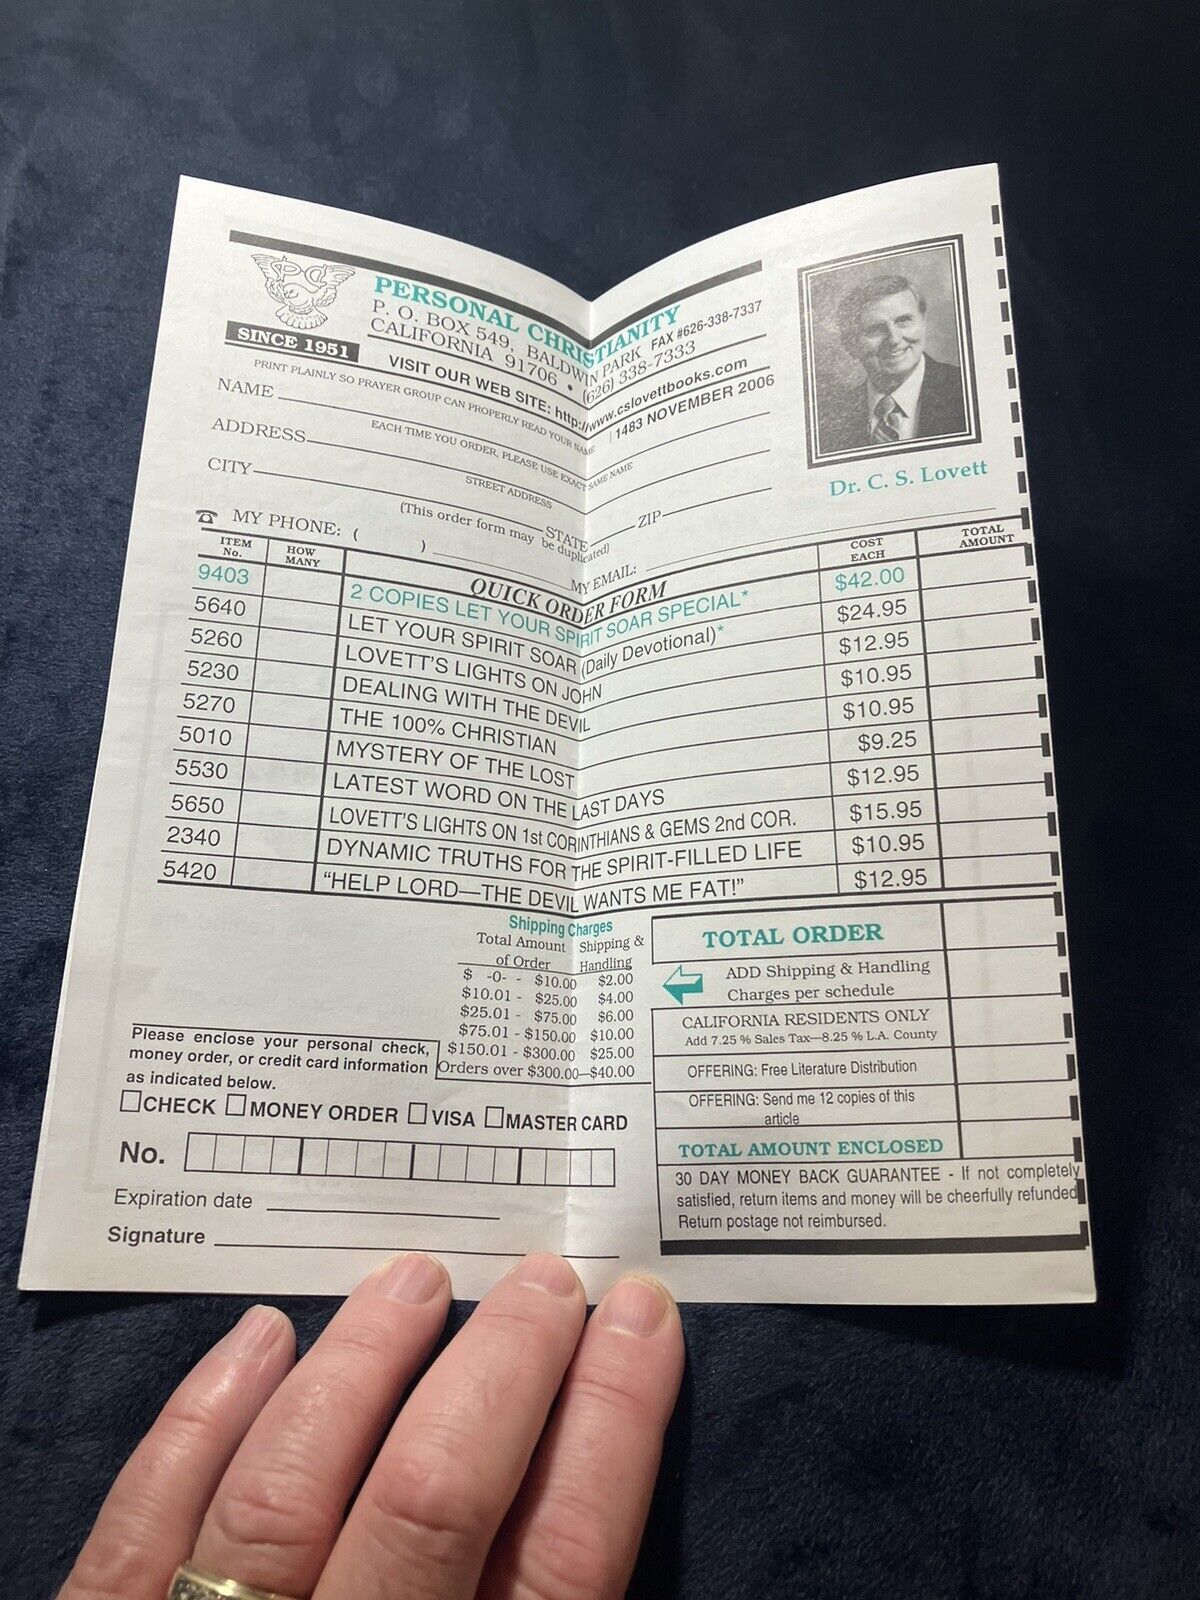 PC
SINCE 1951
PERSONAL CHRISTIANITY
P. O. BOX 549, BALDWIN PARK FAX #626-338-7337
CALIFORNIA 91706 • (626) 338-7333
VISIT OUR WEB SITE: http://www.cslovettbooks.com
PRINT PLAINLY SO PRAYER GROUP CAN PROPERLY READ YOUR NAME
1483 NOVEMBER 2006
NAME
EACH TIME YOU ORDER, PLEASE USE EXACT SAME NAME
ADDRESS
STREET ADDRESS
CITY STATE ZIP
(This order form may be duplicated)
MY PHONE: ( ) MY EMAIL:
Dr. C. S. Lovett
ITEM No. HOW MANY QUICK ORDER FORM COST EACH TOTAL AMOUNT
9403 2 COPIES LET YOUR SPIRIT SOAR SPECIAL* $42.00
5640 LET YOUR SPIRIT SOAR (Daily Devotional)* $24.95
5260 LOVETT'S LIGHTS ON JOHN $12.95
5230 DEALING WITH THE DEVIL $10.95
5270 THE 100% CHRISTIAN $10.95
5010 MYSTERY OF THE LOST $9.25
5530 LATEST WORD ON THE LAST DAYS $12.95
5650 LOVETT'S LIGHTS ON 1st CORINTHIANS & GEMS 2nd COR. $15.95
2340 DYNAMIC TRUTHS FOR THE SPIRIT-FILLED LIFE $10.95
5420 "HELP LORD—THE DEVIL WANTS ME FAT!" $12.95
Shipping Charges
Total Amount of Order Shipping & Handling
$ -0- - $10.00 $2.00
$10.01 - $25.00 $4.00
$25.01 - $75.00 $6.00
$75.01 - $150.00 $10.00
$150.01 - $300.00 $25.00
Orders over $300.00—$40.00
Please enclose your personal check,
money order, or credit card information
as indicated below.
CHECK MONEY ORDER VISA MASTER CARD
No.
Expiration date
Signature
TOTAL ORDER
ADD Shipping & Handling
Charges per schedule
CALIFORNIA RESIDENTS ONLY
Add 7.25 % Sales Tax—8.25 % L.A. County
OFFERING: Free Literature Distribution
OFFERING: Send me 12 copies of this
article
TOTAL AMOUNT ENCLOSED
30 DAY MONEY BACK GUARANTEE - If not completely
satisfied, return items and money will be cheerfully refunded
Return postage not reimbursed.